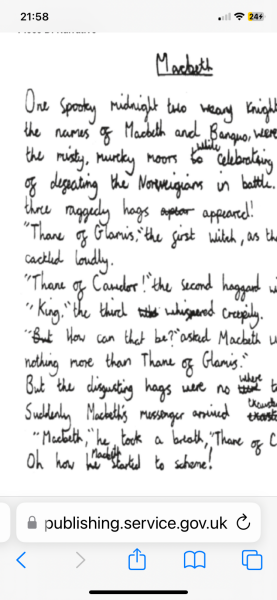 21:58
24+
Macbeth
One spooky midnight two weary knight
the names of Macbeth and Banquo, were
while
the misty, murcky moors to celebrating
of defeating the Norweigians in battle.
three raggedy hags appeared!
"Thane of Glamis," the first witch, as th
cackled loudly.
"Thane of Cawdor!" the second haggard wi
"King," the third whispered creepily.
"But How can that be?" asked Macbeth
nothing more than Thane of Glamis."
where
But the disgusting hags were no
Suddenly Macbeth's messenger arrived
"Macbeth," he took a breath, "Thane of C
Macbeth
Oh how he started to scheme!
publishing.service.gov.uk